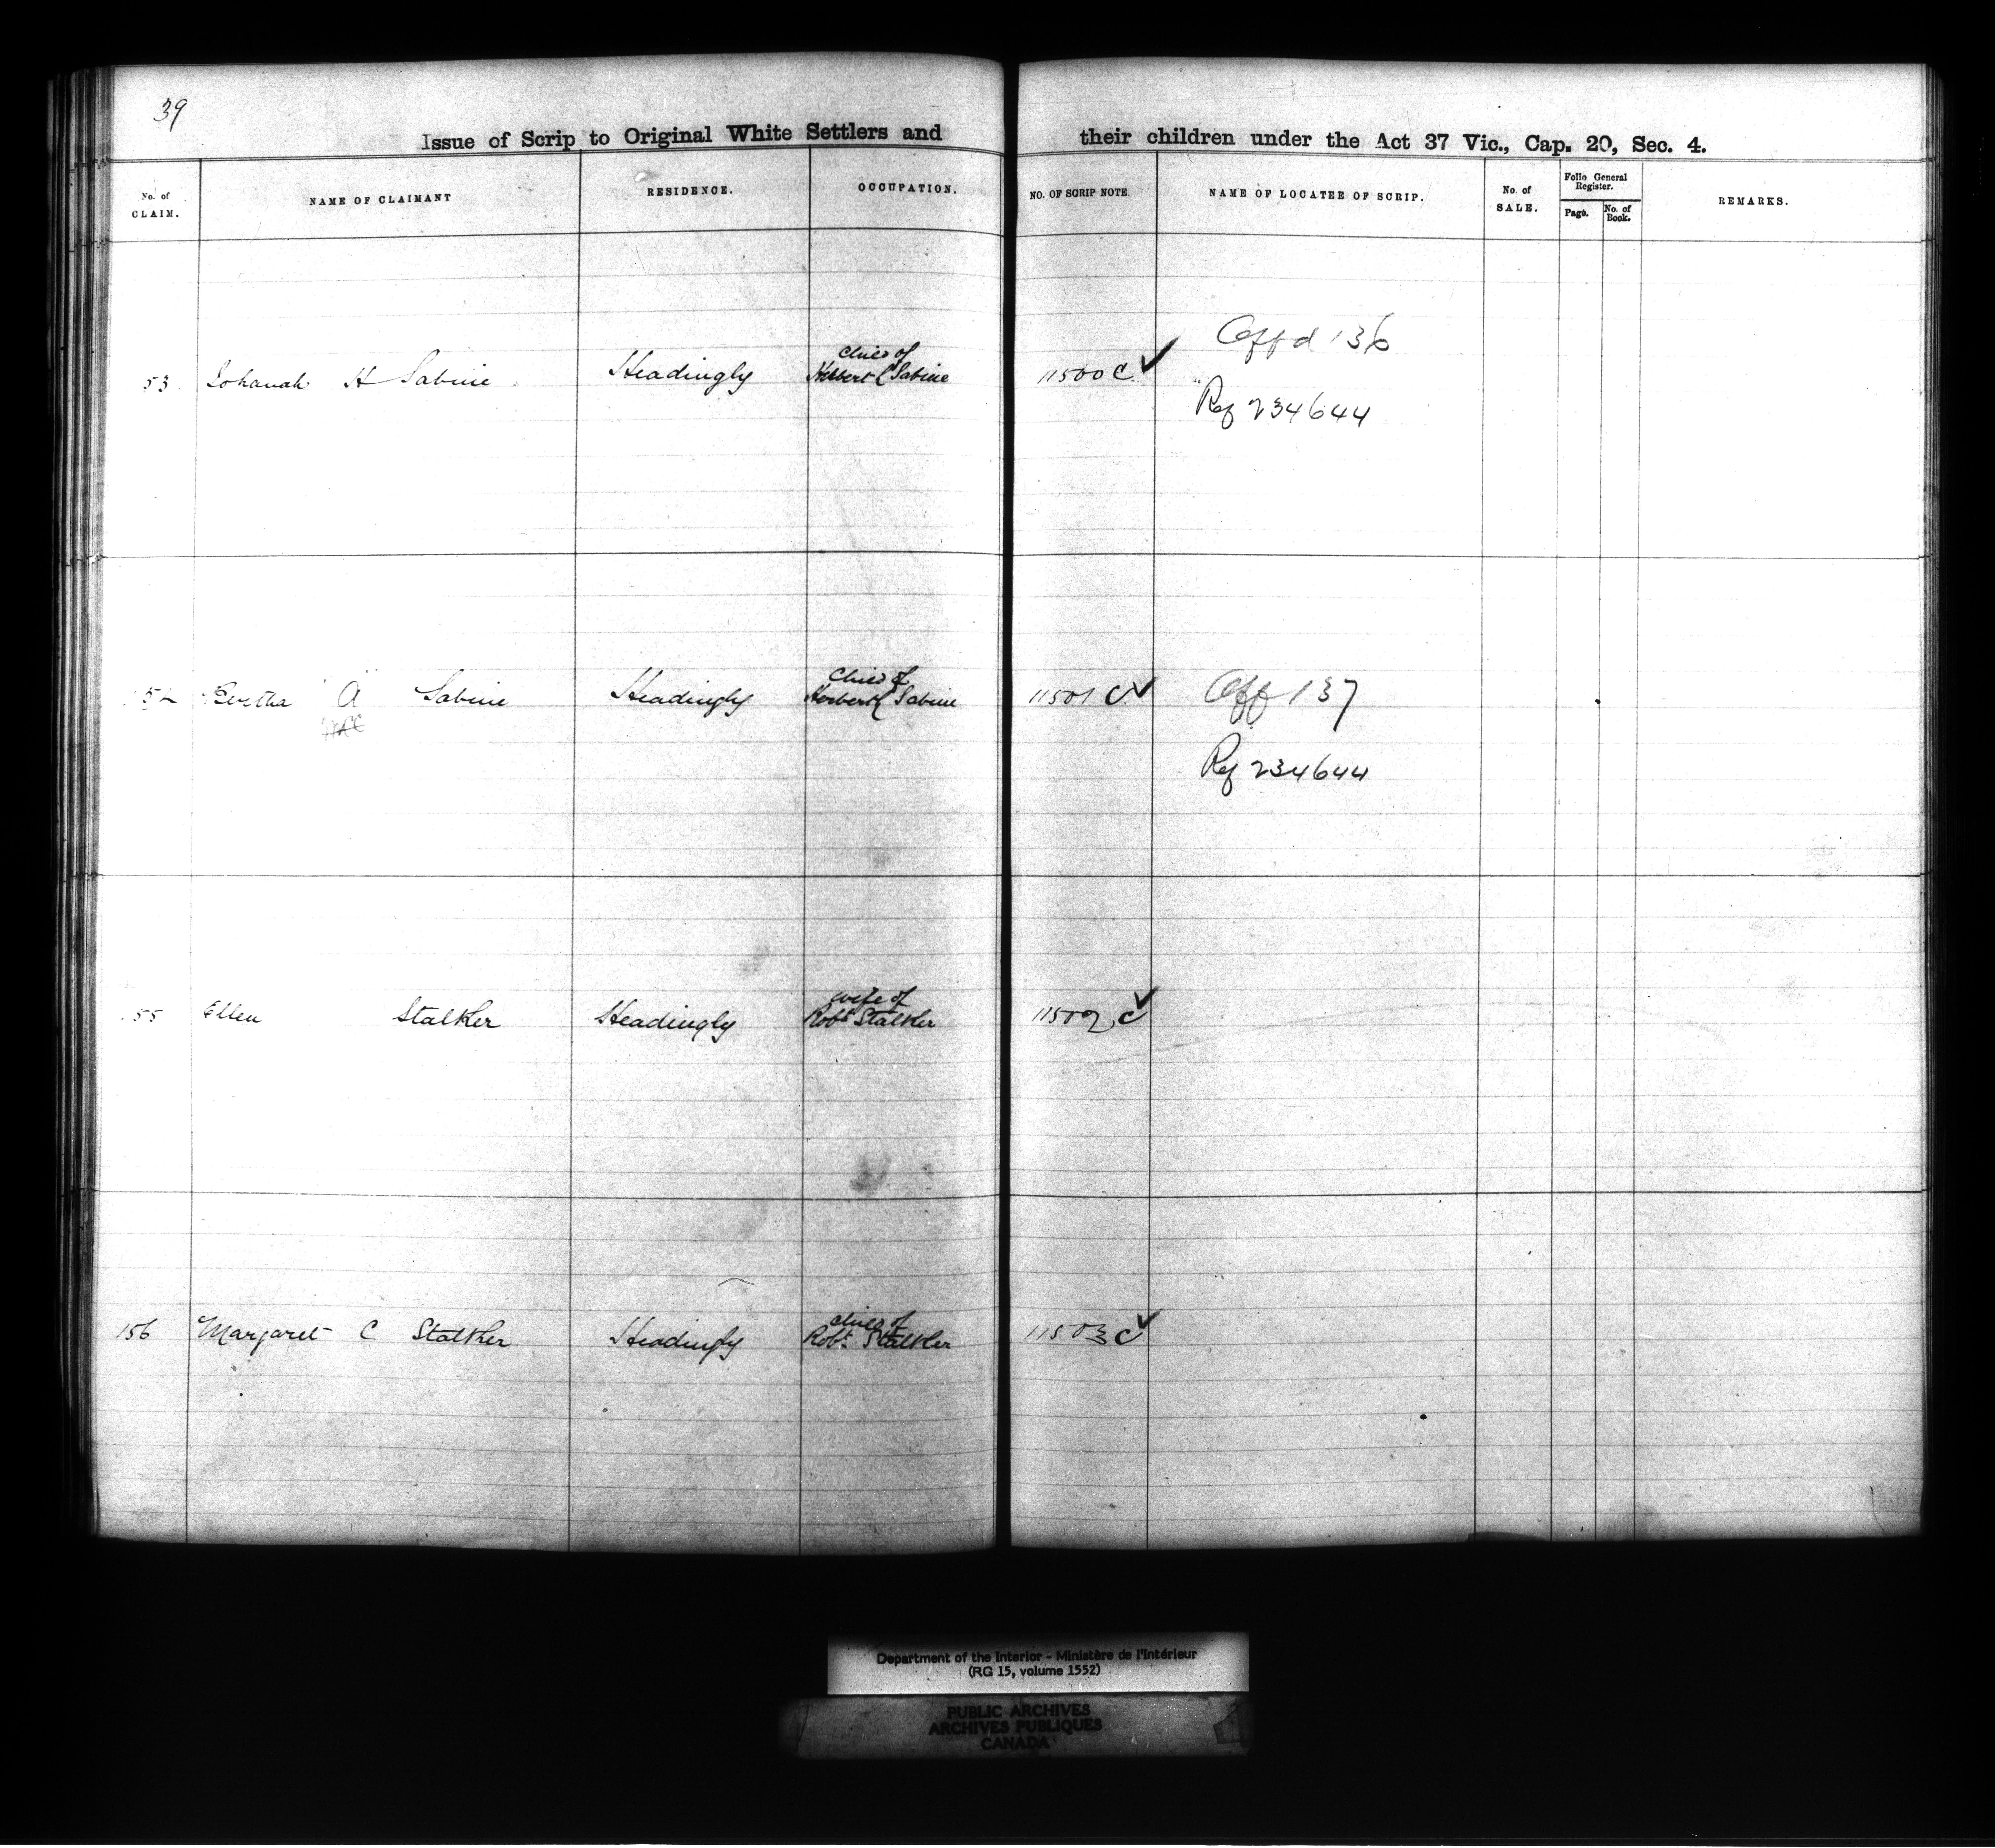 39
Issue of Scrip to Original White Settlers and their children under the Act 37 Vic., Cap. 20, Sec. 4.
No. of CLAIM. NAME OF CLAIMANT RESIDENCE. OCCUPATION. NO. OF SCRIP NOTE. NAME OF LOCATEE OF SCRIP. No. of SALE. Folio General Register. Page. No. of Book. REMARKS.
child of
53 Johanah H Sabine Headingly Herbert C Sabine 11500 C ✓ Aff d 136
Ref 234644
Child of
Bertha A Sabine Headingly Herbert C Sabine 11501 C ✓ Aff 137
Ref 234644
wife of
55 Ellen Stalker Headingly Robt Stalker 11502 C ✓
child of
156 Margaret C Stalker Headingly Robt. Stalker 11503 C ✓
Department of the Interior - Ministère de l'Intérieur
(RG 15, volume 1552)
PUBLIC ARCHIVES
ARCHIVES PUBLIQUES
CANADA